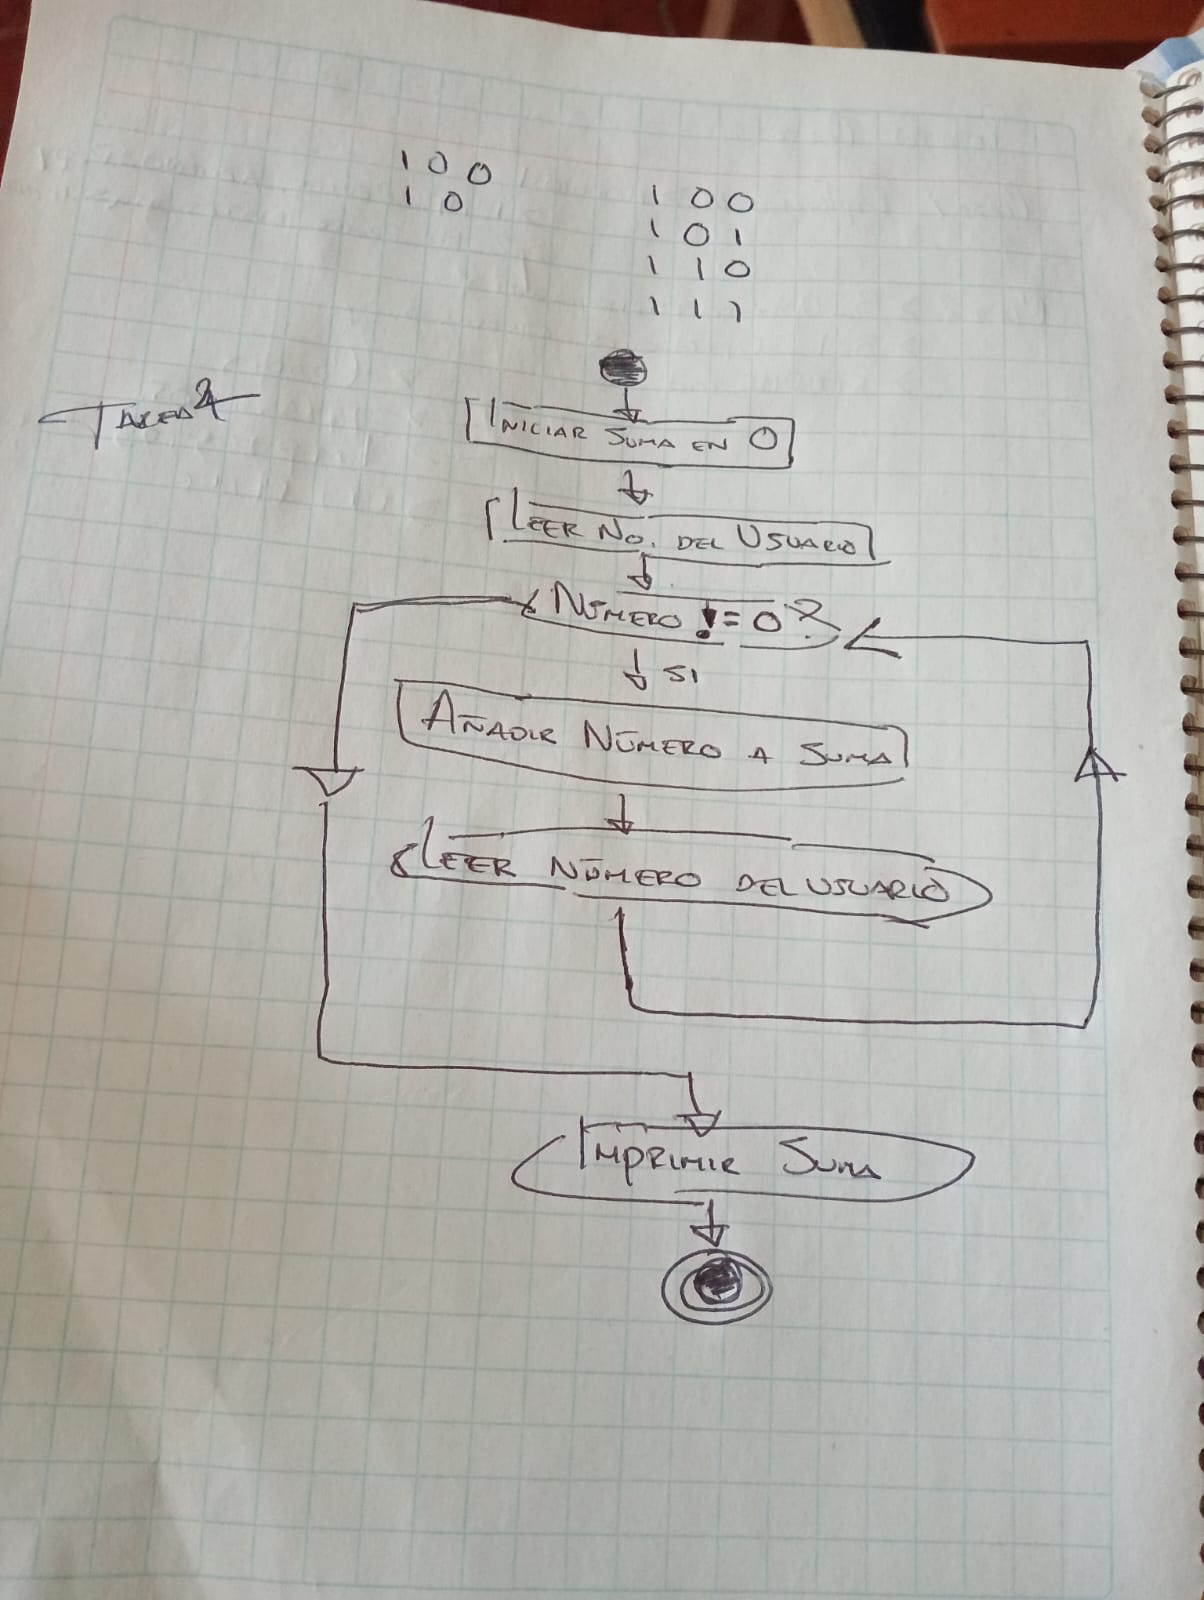 1 0 0
1 0
1 0 0
1 0 1
1 1 0
1 1 1
TAREA
INICIAR SUMA EN 0
LEER NO. DEL USUARIO
NÚMERO != 0?
SI
AÑADIR NÚMERO A SUMA
LEER NÚMERO DEL USUARIO
IMPRIMIR SUMA